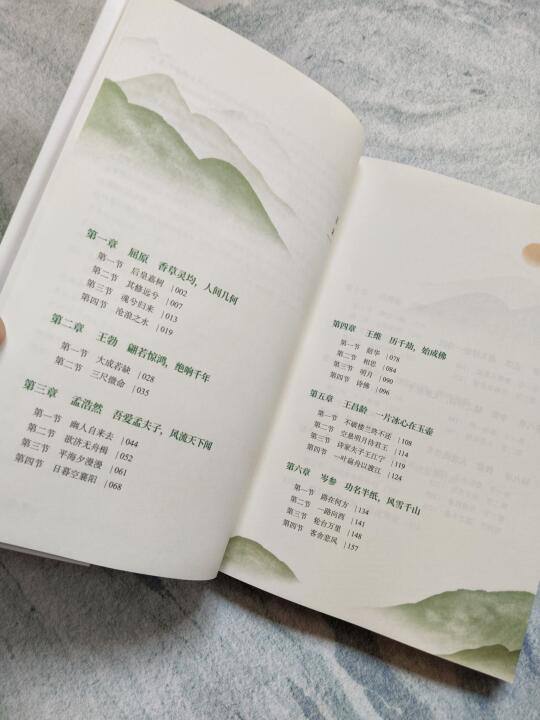 第一章 屈原 香草灵均，人间几何
第一节 后皇嘉树 |002
第二节 其修远兮 |007
第三节 魂兮归来 |013
第四节 沧浪之水 |019
第二章 王勃 翩若惊鸿，绝响千年
第一节 大成若缺 |028
第二节 三尺微命 |035
第三章 孟浩然 吾爱孟夫子，风流天下闻
第一节 幽人自来去 |044
第二节 欲济无舟楫 |052
第三节 平海夕漫漫 |061
第四节 日暮空襄阳 |068
第四章 王维 历千劫，始成佛
第一节 韶华 |078
第二节 相思 |084
第三节 明月 |090
第四节 诗佛 |096
第五章 王昌龄 一片冰心在玉壶
第一节 不破楼兰终不还 |108
第二节 空悬明月待君王 |114
第三节 诗家夫子王江宁 |119
第四节 一叶扁舟以渡江 |124
第六章 岑参 功名半纸，风雪千山
第一节 路在何方 |134
第二节 一路向西 |141
第三节 轮台万里 |148
第四节 客舍悲风 |157